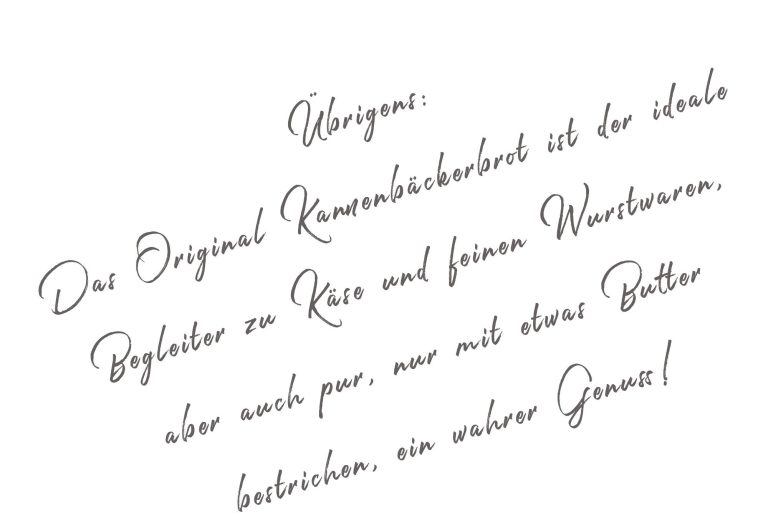 Übrigens:
Das Original Kannenbäckerbrot ist der ideale
Begleiter zu Käse und feinen Wurstwaren,
aber auch pur, nur mit etwas Butter
bestrichen, ein wahrer Genuss!